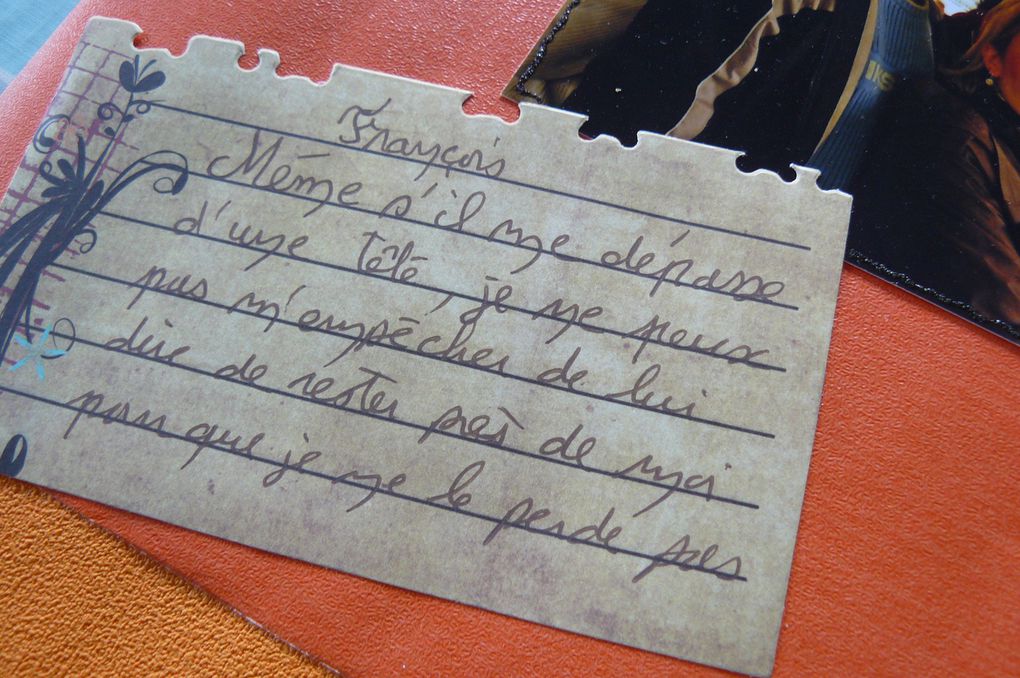 François
Même s'il me dépasse
d'une tête, je ne peux
pas m'empêcher de lui
dire de rester près de moi
pour que je ne le perde pas